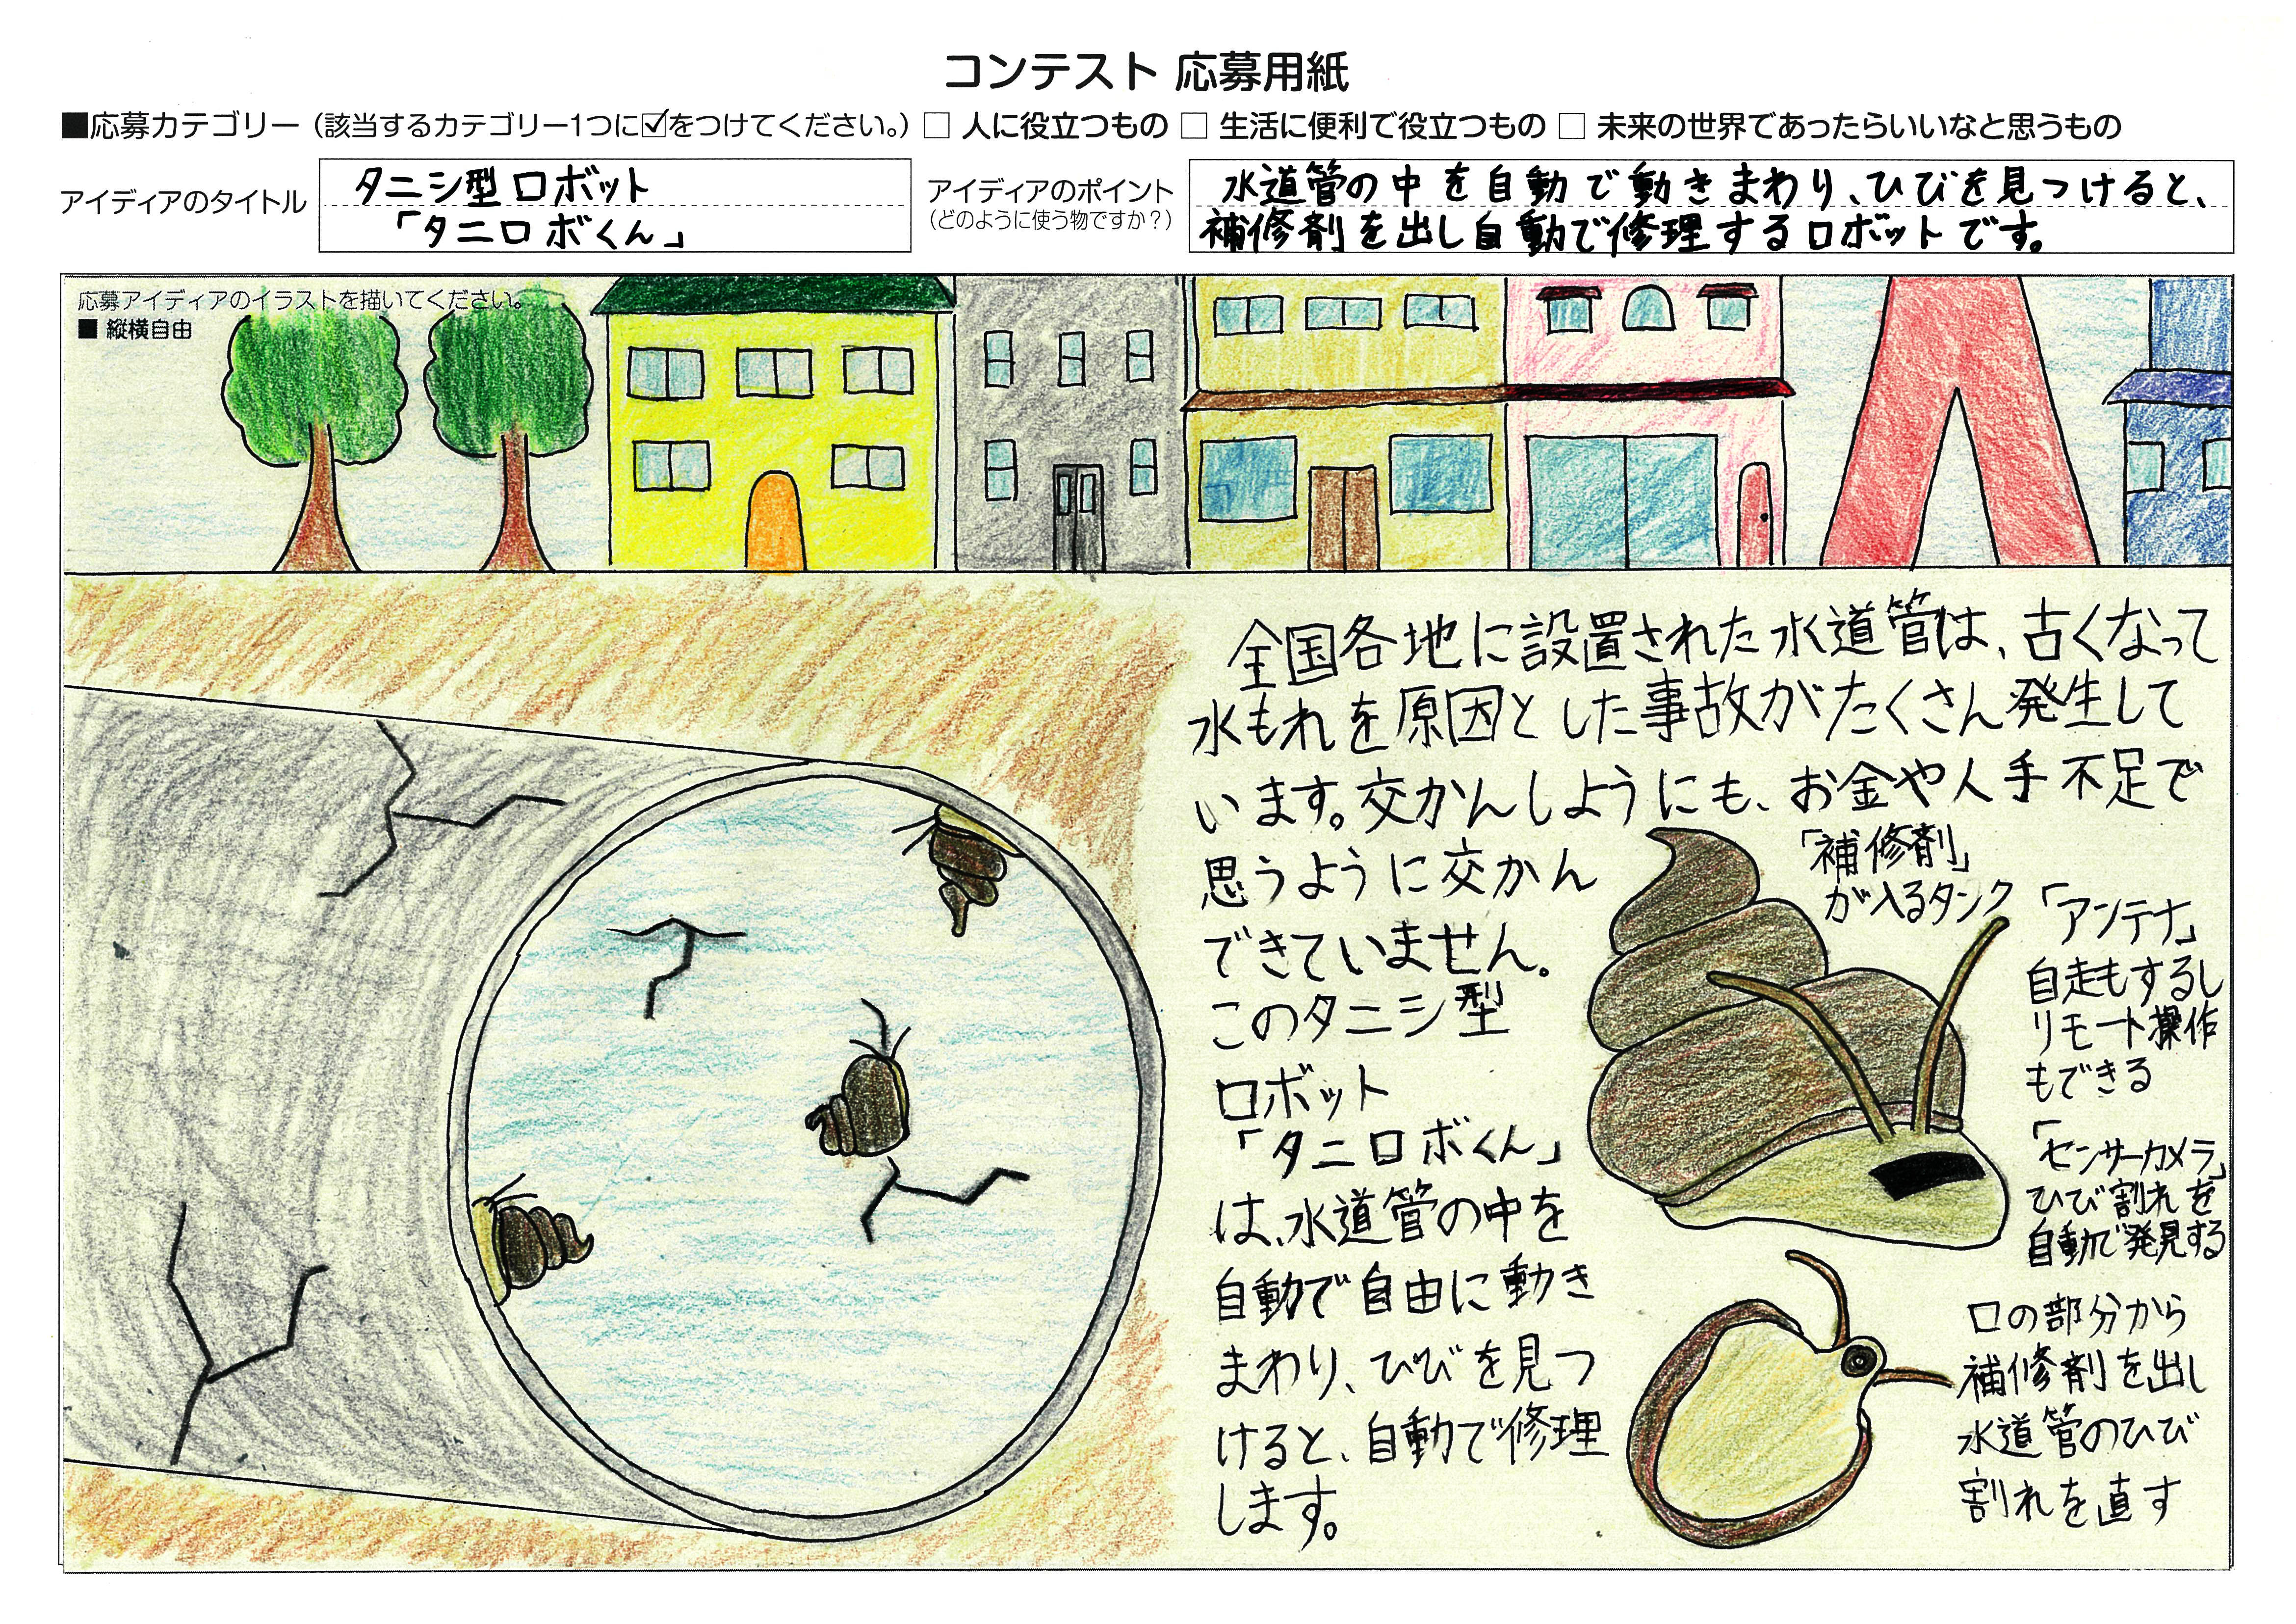 コンテスト 応募用紙
■応募カテゴリー（該当するカテゴリー1つに☑をつけてください。）□ 人に役立つもの □ 生活に便利で役立つもの □ 未来の世界であったらいいなと思うもの
アイディアのタイトル
タニシ型ロボット
「タニロボくん」
アイディアのポイント
（どのように使う物ですか？）
水道管の中を自動で動きまわり、ひびを見つけると、
補修剤を出し自動で修理するロボットです。
応募アイディアのイラストを描いてください。
■ 縦横自由
全国各地に設置された水道管は、古くなって
水もれを原因とした事故がたくさん発生して
います。交かんしようにも、お金や人手不足で
思うように交かん
できていません。
このタニシ型
ロボット
「タニロボくん」
は、水道管の中を
自動で自由に動き
まわり、ひびを見つ
けると、自動で修理
します。
「補修剤」
が入るタンク
「アンテナ」
自走もするし
リモート操作
もできる
「センサーカメラ」
ひび割れを
自動で発見する
口の部分から
補修剤を出し
水道管のひび
割れを直す